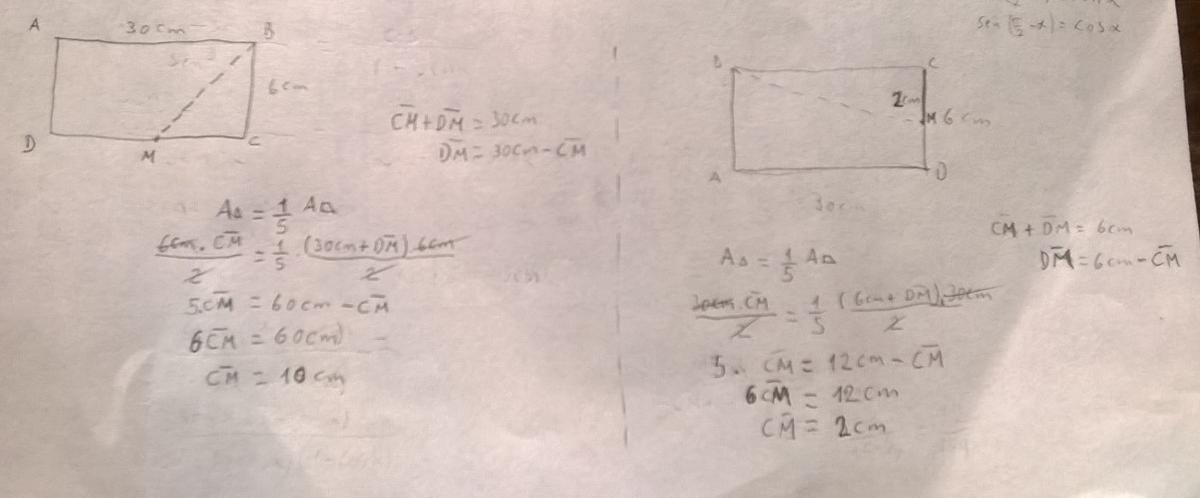 A 30cm B
6cm
D M C
C̅M̅ + D̅M̅ = 30cm
D̅M̅ = 30cm - C̅M̅
A△ = 1/5 A⏢
6cm . C̅M̅ / 2 = 1/5 . (30cm + D̅M̅) 6cm / 2
5.C̅M̅ = 60cm - C̅M̅
6C̅M̅ = 60cm
C̅M̅ = 10cm
sen(π/2 - x) = cosx
B C
2cm
M 6cm
A D
30cm
C̅M̅ + D̅M̅ = 6cm
D̅M̅ = 6cm - C̅M̅
A△ = 1/5 A⏢
30cm . C̅M̅ / 2 = 1/5 (6cm + D̅M̅).30cm / 2
5. C̅M̅ = 12cm - C̅M̅
6C̅M̅ = 12cm
C̅M̅ = 2cm